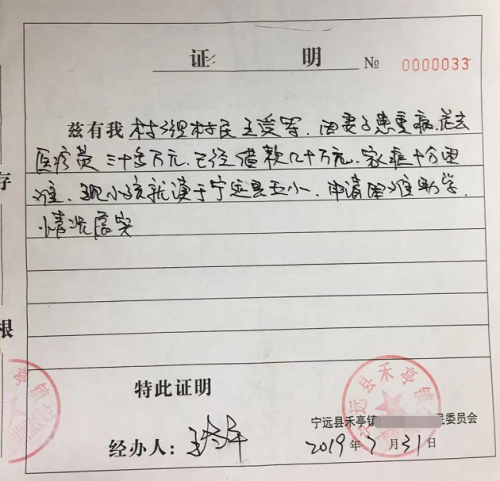 证 明 № 0000033
兹有我村X组村民王受军，因妻子患重病，花去
医疗费三十多万元，已经借款几十万元，家庭十分困
难，现小孩就读于宁远县五小，申请困难助学，
情况属实
存
根
特此证明
宁远县禾亭镇 民委员会
经办人：
2019年7月31日
宁远县禾亭镇